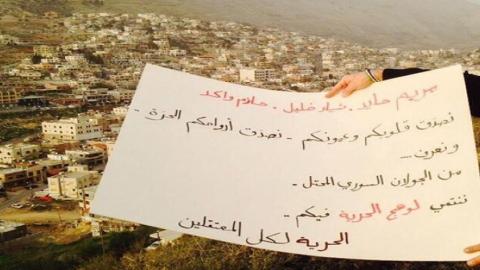 مريم حايد . شيار خليل . حازم واكد
نصدق قلوبكم وعيونكم - نصدق أرواحكم الحرة -
ونعرف ...
من الجولان السوري المحتل .
ننتمي لوهج الحرية فيكم .
الحرية لكل المعتقلين